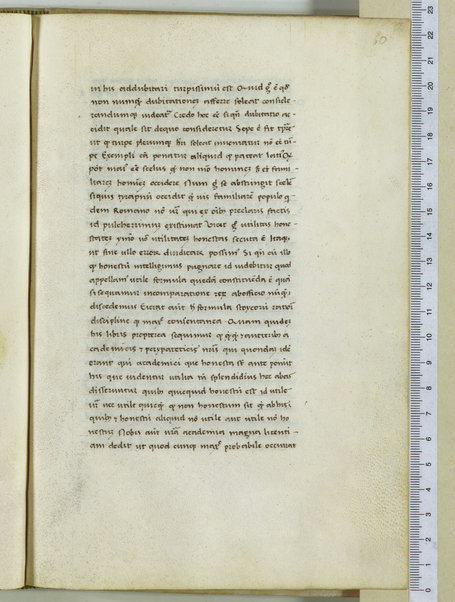 in his addubitari turpissimū est Quid g̃ ē q̃
non nunq̃ dubitationes afferre soleat conside
randumq̃ videat᷑ Credo hoc cē si qñ dubitatio ac-
cidit quale sit dequo consideretur Sepe ē fit tp̃re
ut q̃ turpe plerumq̃ hr̃i soleat inveniatur nō cē tur
pe Exempli cā ponatur aliquid q̃ pateat latiꝰ Q̃
pōt maiꝰ cē scelus q̃ non mō hominē s̃ et fami
liarē hominē occidere Num g̃ se abstrinxit scele
siquis tyrannū occidit q̃ vis familiarē populo q̃
dem Romano nō vr̃ qui ex oĩbꝰ preclaris factis
id pulcherrimū existimat Vicit g̃ utilitas hone
statē ymo vō utilitatē honestas secuta ē Itaq̃
ut sine ullo errore diudicare possimꝰ Si qñ cū illo
q̃ honestū intelligimus pugnare id videbitur quod
appellamꝰ utile formula quedā constituēda ē quā
si sequamur incomparatione rerꝫ abofficio nūq̃
discedemus Erit aut̃ h̃ formula stoycorū rationi
discipline q̃ maxĩe consentanea Quam quideꝫ
his libris propterea sequimur q̃ q̃q̃ ⁊ aveteribꝰ a
cademicis ⁊ perypateticis nr̃is qui quondā idē
erant qui academici que honesta sr̃ ante ponūt
his que videntur utilia tñ splendidius hec abeis
disseruntur quibꝰ quicquid honestū est id utile
vr̃ nec utile quicq̃ q̃ non honestum sit q̃ abhis
quibꝰ ⁊ honestū aliquid nō utile aut utile nō ho
nestum Nobis aut̃ nr̃a academia magna licenti-
am dedit ut quod cunq̃ maxĩe probabile occurrat